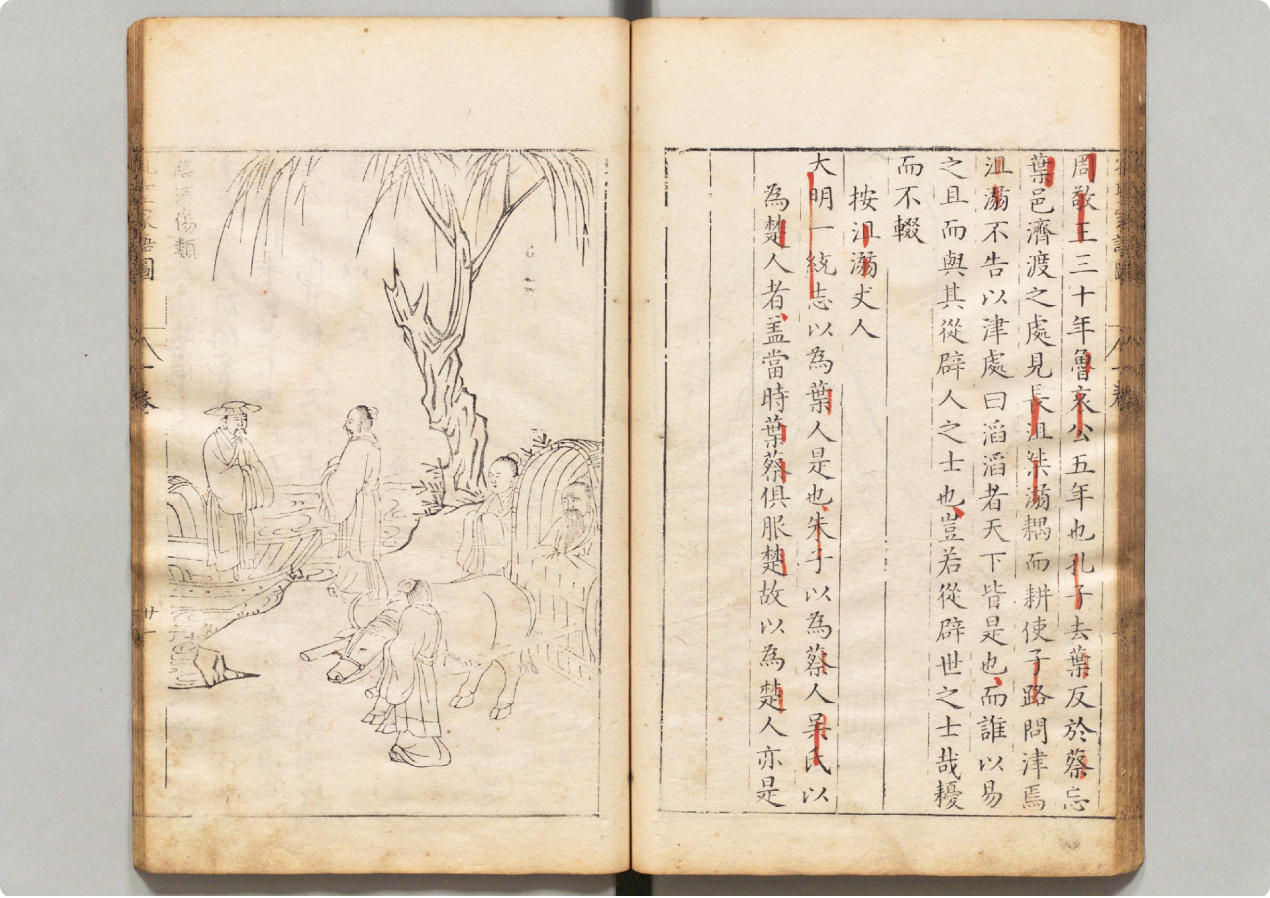 周敬王三十年魯哀公五年也孔子去葉反於蔡忘
葉邑濟渡之處見長沮桀溺耦而耕使子路問津焉
沮溺不告以津處曰滔滔者天下皆是也而誰以易
之且而與其從辟人之士也豈若從辟世之士哉耰
而不輟
按沮溺丈人
大明一統志以為葉人是也朱子以為蔡人吴氏以
為楚人者盖當時葉蔡俱服楚故以為楚人亦是